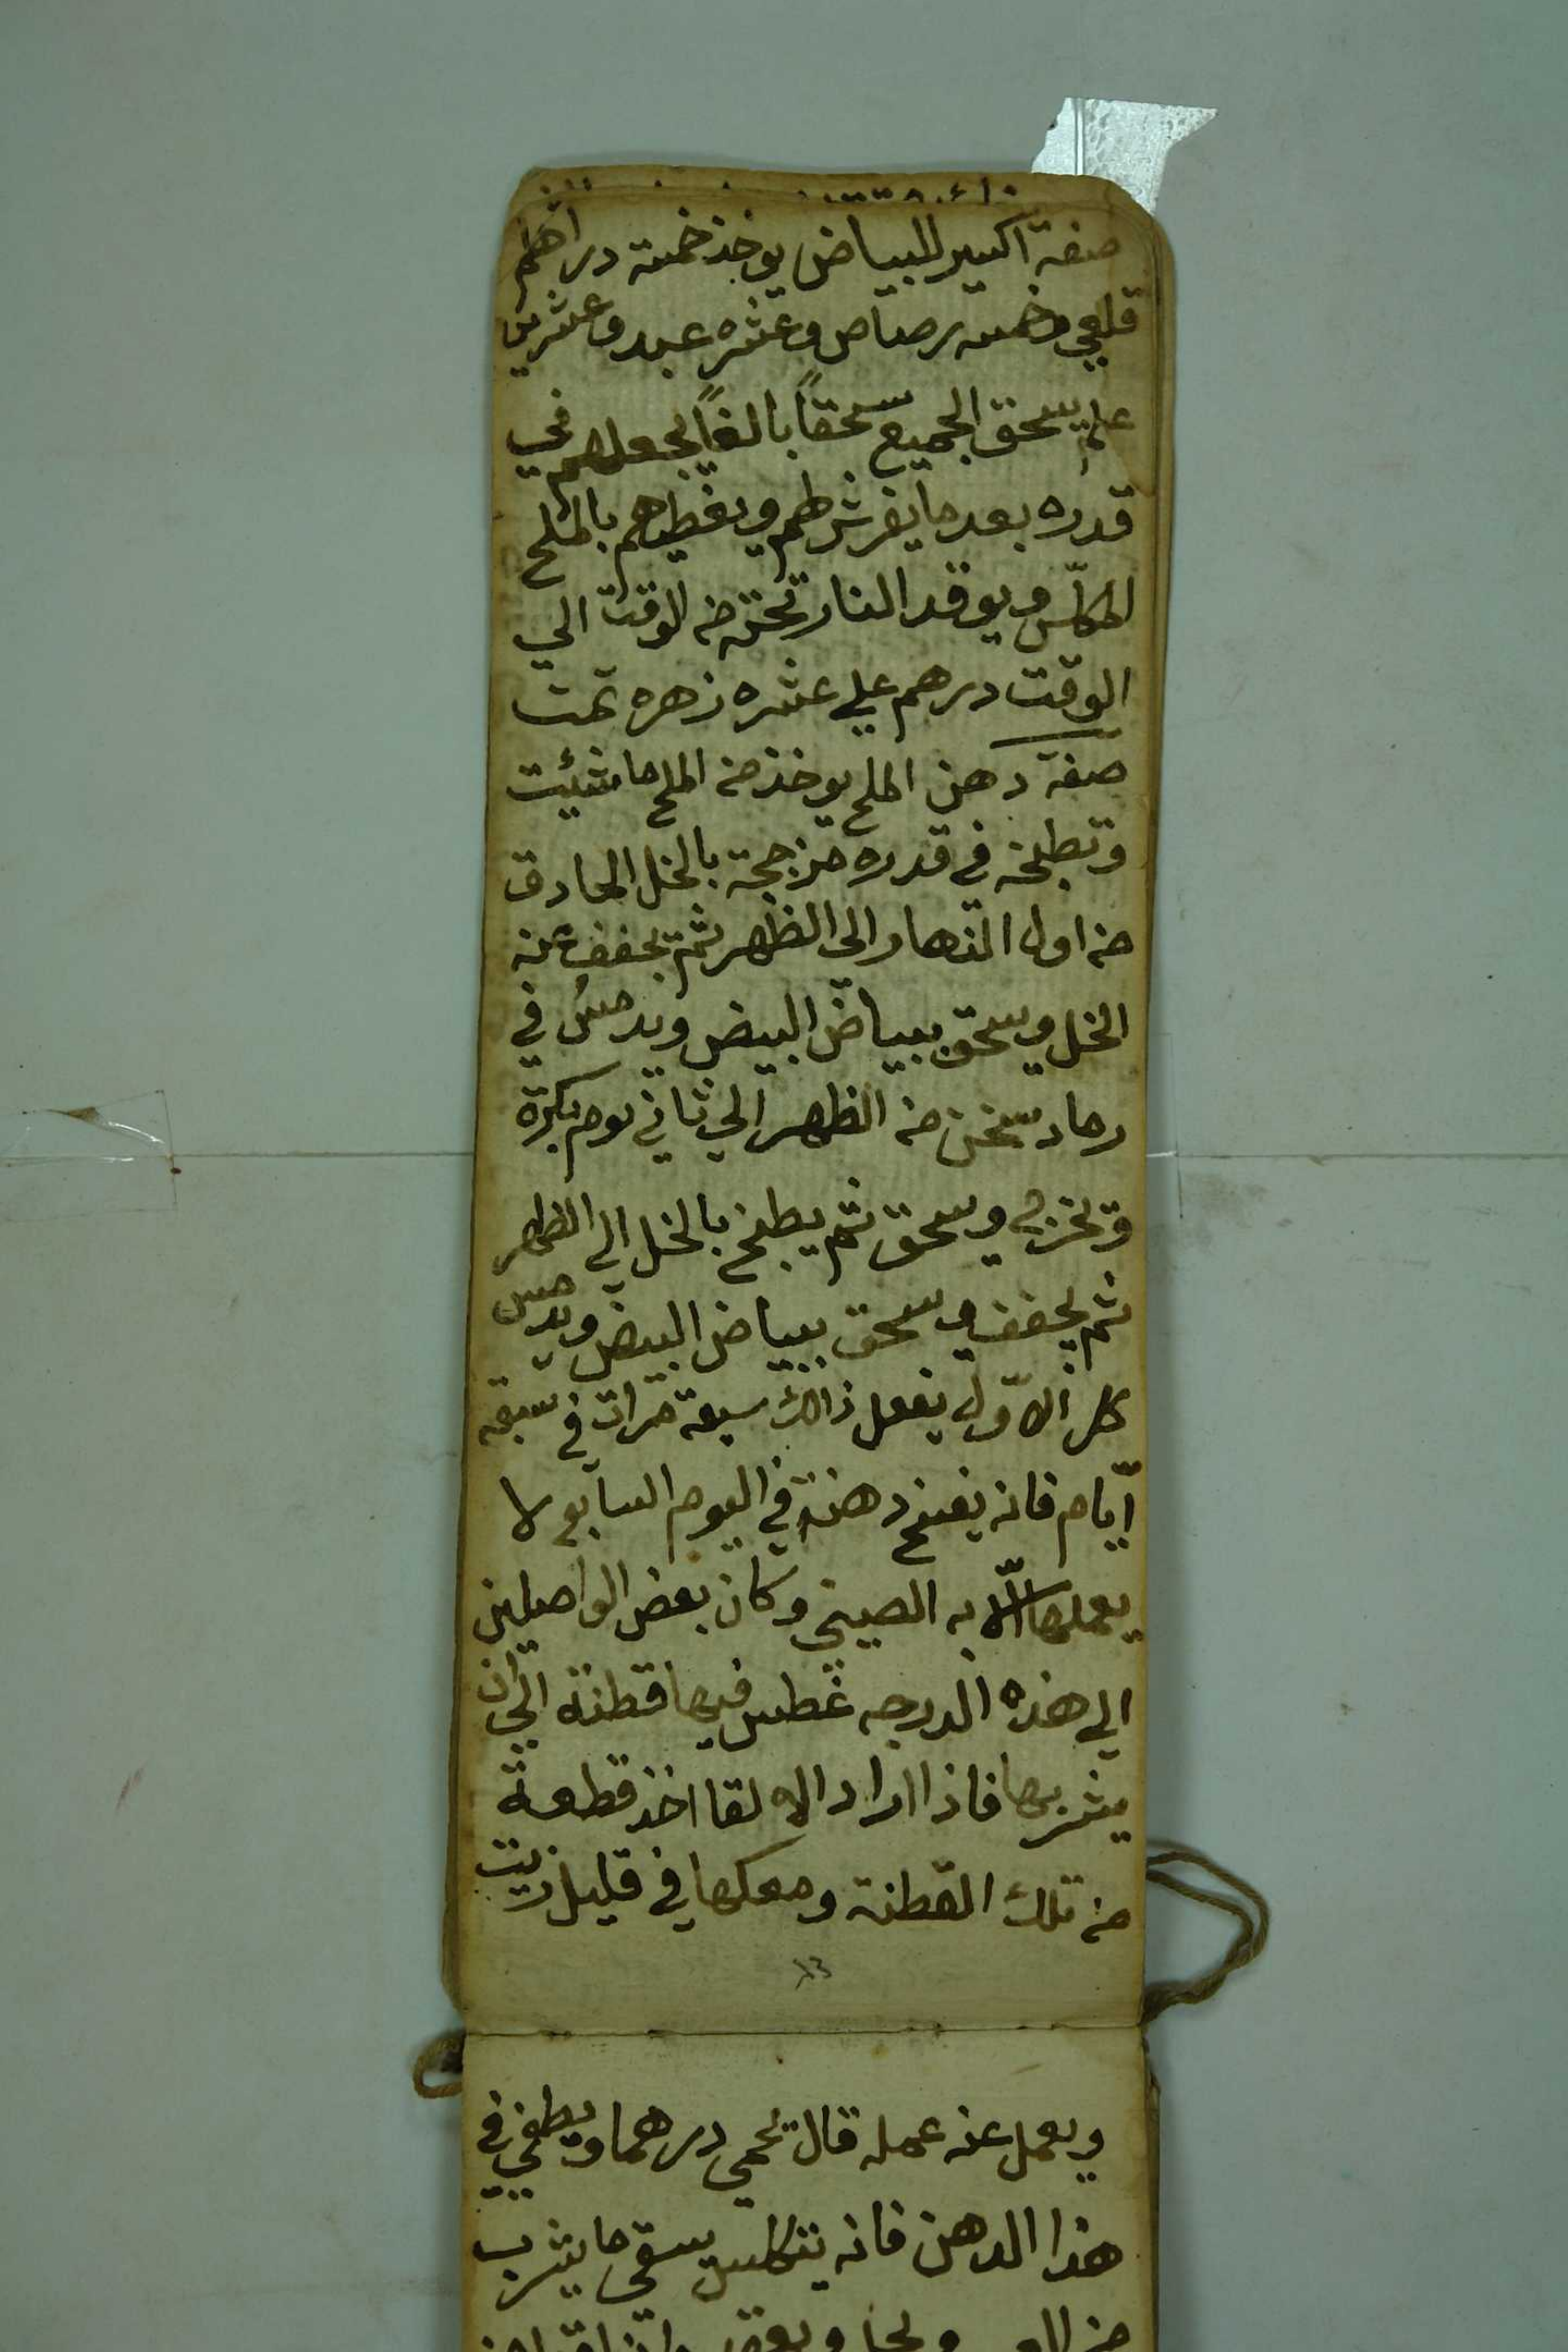 صفة اكسير للبياض يوخذ خمسة دراهم
قلعي وخمسه رصاص وعشره عبد وعشرين
علم يسحق الجميع سحقاً بالغاً يجعلهم في
قدره بعد ما يفرش لهم ويغطيهم بالملح
المكلّس ويوقد النار تحته من الوقت الي
الوقت درهم علي عشره زهره تمت
صفة دهن الملح يوخذ من الملح ما شئت
وتطبخه في قدره مزججة بالخل الحادق
من اول النهار الى الظهر ثم تجفف عنه
الخل ويسحق ببياض البيض ويدمس في
رماد سخن من الظهر الي ثاني يوم بكرة
وتخرجه ويسحق ثم يطبخ بالخل الي الظهر
ثم يجفف ويسحق ببياض البيض ويدمس
كالاوّل يفعل ذالك سبعة مرات في سبعة
ايّام فانه يفتح دهنة في اليوم السابع لا
يعملها الّا به الصيني وكان بعض الواصلين
الي هذه الدرجه غطس فيها قطنة الي ان
يشربها فاذا اراد الالقا اخذ قطعة
من تلك القطنة ومعكها في قليل زيت
ويعمل عنه عمله قال تحمي درهما ويطفي في
هذا الدهن فانه يتكلس يسقي ما يشرب